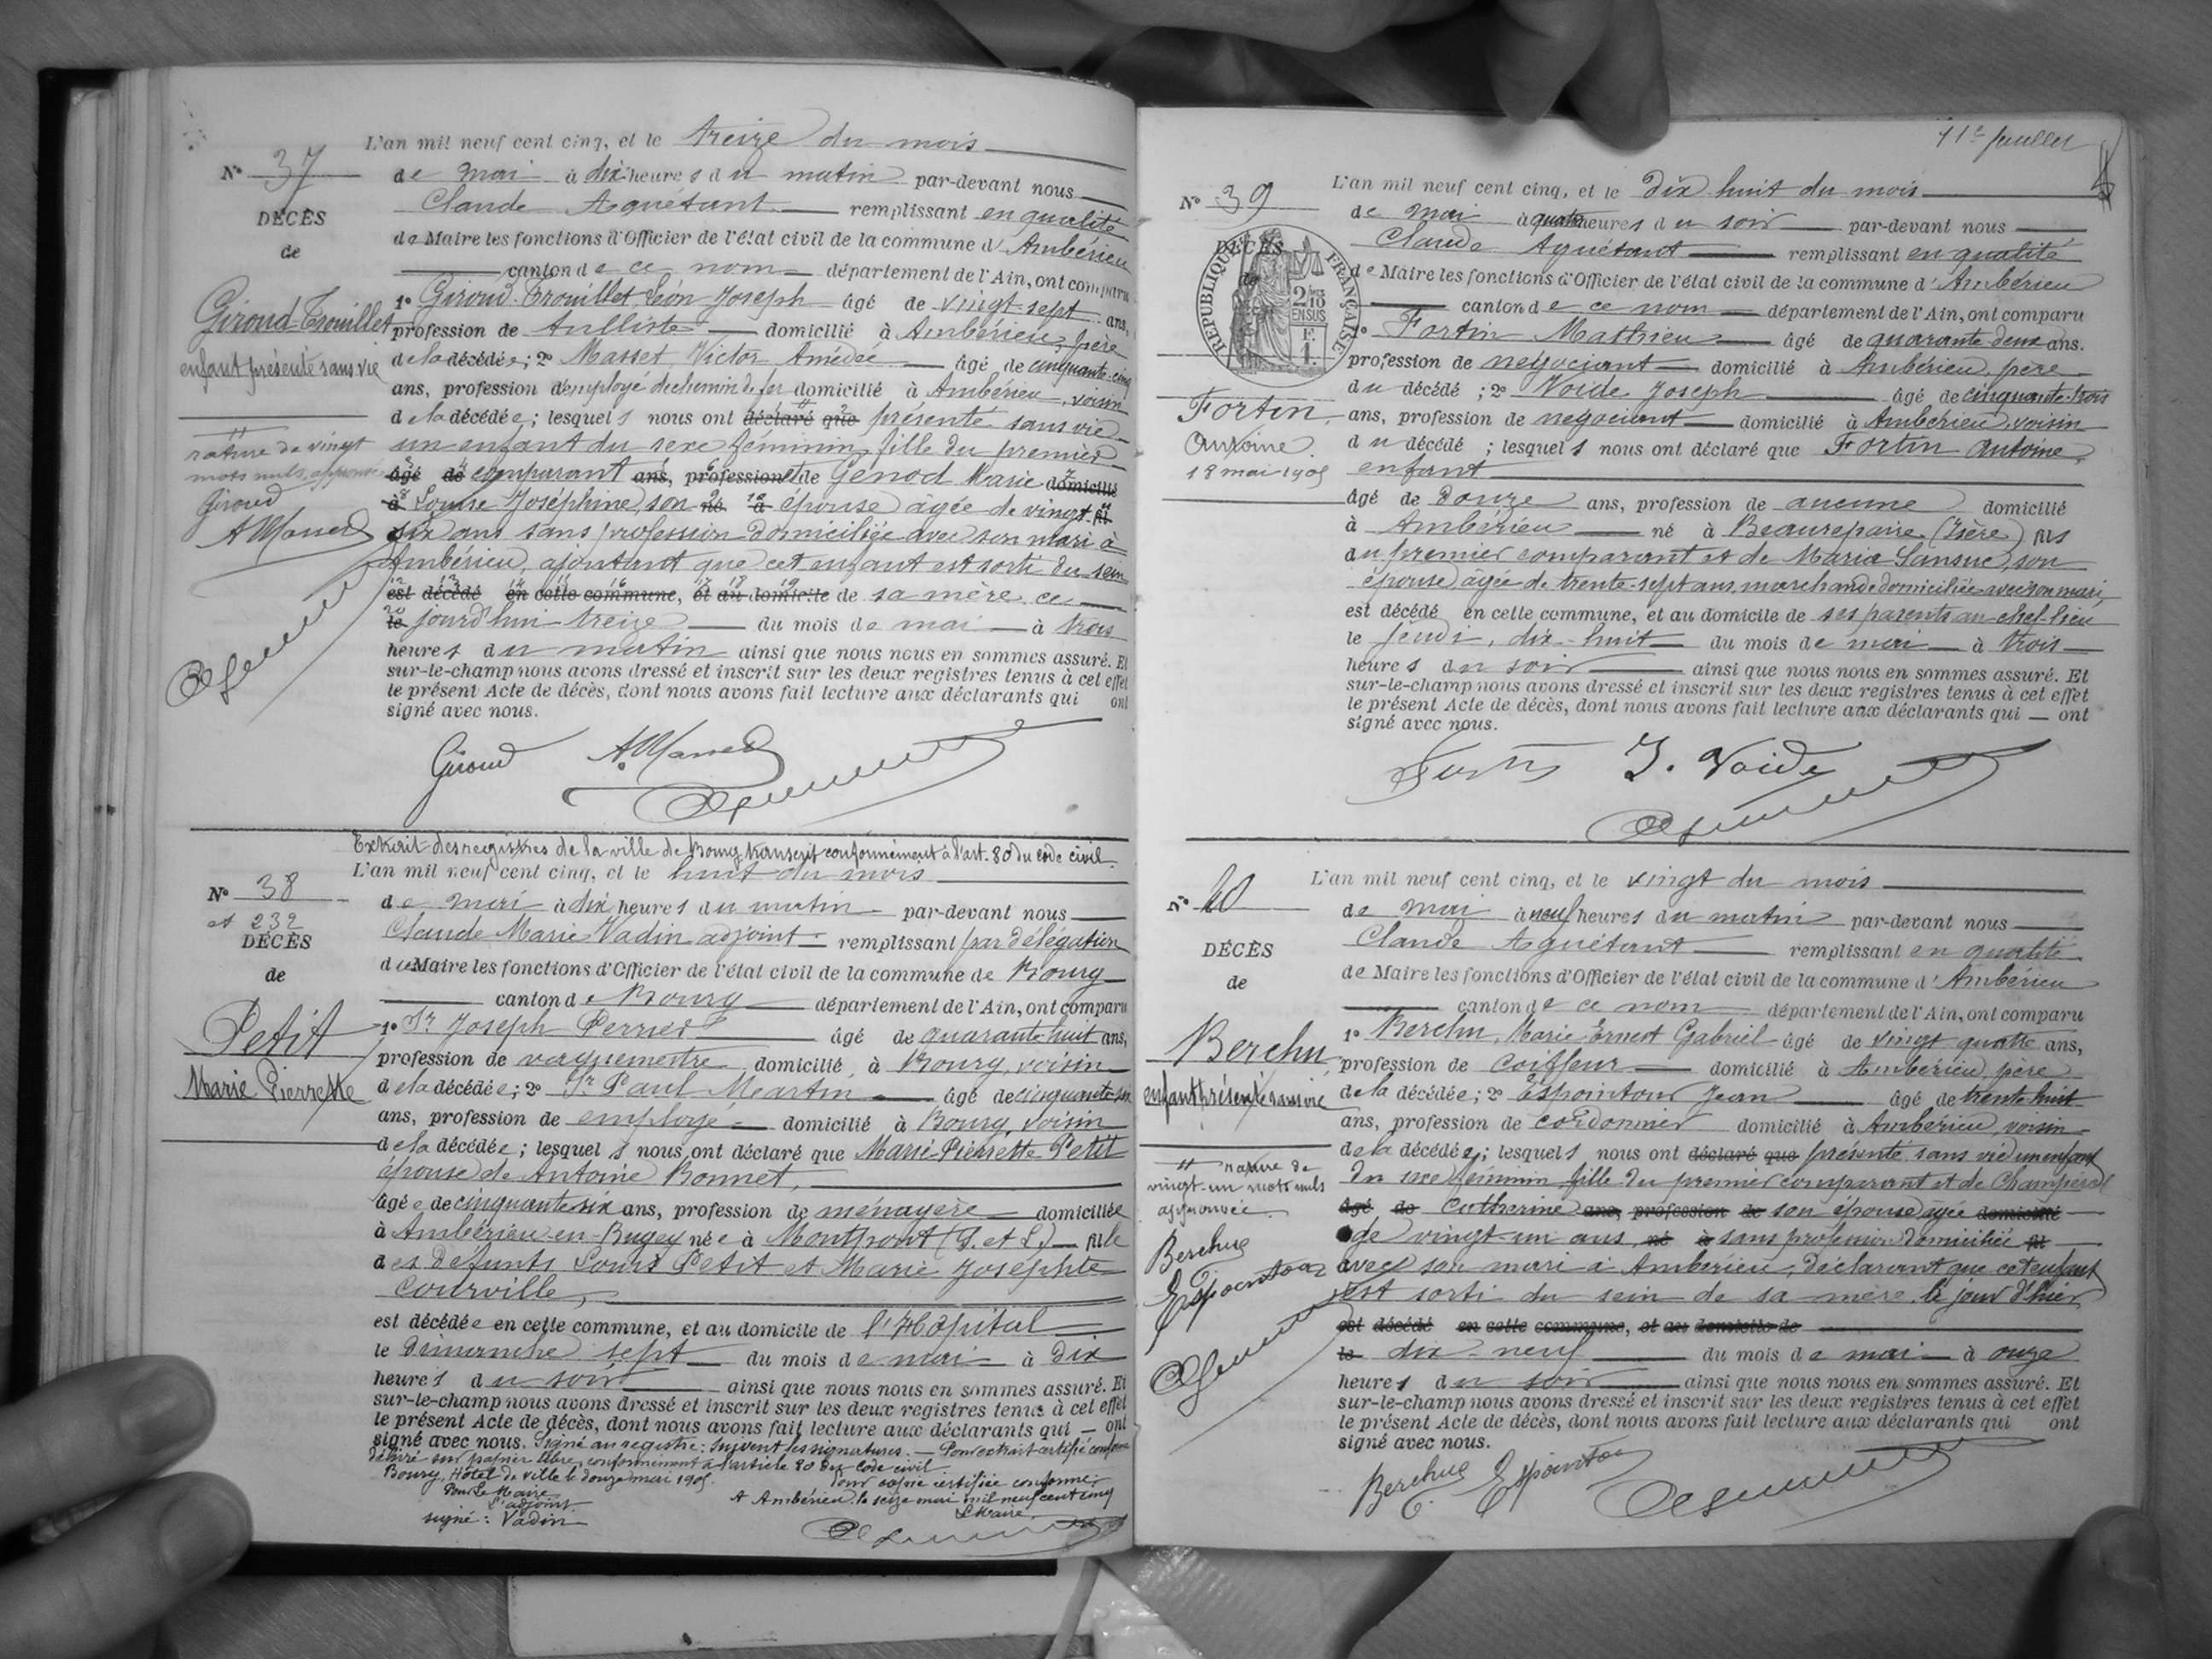 L'an mil neuf cent cinq, et le treize du mois
N° 37
de mai à dix heures du matin par-devant nous
DÉCÈS
Claude Aguétant remplissant en qualité
de
de Maire les fonctions d'Officier de l'état civil de la commune d'Ambérieu
canton de ce nom département de l'Ain, ont comparu
Giroud-Trouillet
enfant présenté sans vie
1° Giroud-Trouillet Léon Joseph âgé de vingt-sept ans,
profession de tulliste domicilié à Ambérieu, père
de la décédée; 2° Masset Victor Amédée âgé de cinquante-cinq
ans, profession d'employé de chemin de fer domicilié à Ambérieu, voisin
de la décédée; lesquels nous ont déclaré que présenté sans vie
un enfant du sexe féminin, fille du premier
âgé de comparant ans, profession et de Genod Marie domicilié
à Louise Joséphine, son né à épouse âgée de vingt fil
six ans sans profession domiciliée avec son mari à
Ambérieu, ajoutant que cet enfant est sorti du sein
est décédé en cette commune, et au domicile de sa mère ce
le jourd'hui treize du mois de mai à trois
heures du matin ainsi que nous nous en sommes assuré. Et
sur-le-champ nous avons dressé et inscrit sur les deux registres tenus à cet effet
le présent Acte de décès, dont nous avons fait lecture aux déclarants qui ont
signé avec nous.
rature de vingt
mots nuls, approuvé
Giroud
A Masset
Giroud A. Masset
Extrait des registres de la ville de Bourg transcrit conformément à l'art. 80 du code civil.
L'an mil neuf cent cinq, et le huit du mois
N° 38
et 232
de mai à dix heures du matin par-devant nous
DÉCÈS
Claude Marie Vadin adjoint remplissant par délégation
de
du Maire les fonctions d'Officier de l'état civil de la commune de Bourg
canton de Bourg département de l'Ain, ont comparu
Petit
Marie Pierrette
1° Sr Joseph Perrier âgé de quarante huit ans,
profession de vaguemestre domicilié à Bourg, voisin
de la décédée; 2° Sr Paul Martin âgé de cinquante-six
ans, profession de employé domicilié à Bourg, voisin
de la décédée; lesquels nous ont déclaré que Marie-Pierrette Petit
épouse de Antoine Bonnet,
âgée de cinquante six ans, profession de ménagère domiciliée
à Ambérieu-en-Bugey née à Montpont (S. et L.) fille
des défunts Louis Petit et Marie Josephte
Courville,
est décédée en cette commune, et au domicile de l'Hôpital
le Dimanche sept du mois de mai à dix
heures du soir ainsi que nous nous en sommes assuré. Et
sur-le-champ nous avons dressé et inscrit sur les deux registres tenus à cet effet
le présent Acte de décès, dont nous avons fait lecture aux déclarants qui ont
signé avec nous. Signé au registre: Suivent les signatures. — Pour extrait certifié conforme
délivré sur papier libre, conformément à l'article 80 du Code civil
Bourg, Hôtel de ville le douze mai 1905.
Pour Le Maire
L'adjoint
signé: Vadin
Pour copie certifiée conforme:
A Ambérieu le seize mai mil neuf cent cinq
Le Maire
11e feuillet
L'an mil neuf cent cinq, et le dix huit du mois
N° 39
de mai à quatre heures du soir par-devant nous
DÉCÈS
de
RÉPUBLIQUE FRANÇAISE
2/10 EN SUS
F. 1.
Claude Aguétant remplissant en qualité
de Maire les fonctions d'Officier de l'état civil de la commune d'Ambérieu
canton de ce nom département de l'Ain, ont comparu
1° Fortin Mathieu âgé de quarante deux ans.
profession de négociant domicilié à Ambérieu, père
du décédé; 2° Voide Joseph âgé de cinquante-trois
ans, profession de négociant domicilié à Ambérieu, voisin
du décédé; lesquels nous ont déclaré que Fortin Antoine,
enfant
Fortin
Antoine
18 mai 1905
âgé de douze ans, profession de aucune domicilié
à Ambérieu né à Beaurepaire (Isère) fils
du premier comparant et de Maria Sansuc, son
épouse, âgée de trente-sept ans, marchande domiciliée avec son mari,
est décédé en cette commune, et au domicile de ses parents au chef-lieu
le jeudi, dix-huit du mois de mai à trois
heures du soir ainsi que nous nous en sommes assuré. Et
sur-le-champ nous avons dressé et inscrit sur les deux registres tenus à cet effet
le présent Acte de décès, dont nous avons fait lecture aux déclarants qui — ont
signé avec nous.
Fortin J. Voide
L'an mil neuf cent cinq, et le vingt du mois
N° 40
de mai à neuf heures du matin par-devant nous
DÉCÈS
Claude Aguétant remplissant en qualité
de
de Maire les fonctions d'Officier de l'état civil de la commune d'Ambérieu
canton de ce nom département de l'Ain, ont comparu
Berchu
enfant présenté sans vie
1° Berchu, Marie Ernest Gabriel âgé de vingt quatre ans,
profession de coiffeur domicilié à Ambérieu, père
de la décédée; 2° Espointour Jean âgé de trente huit
ans, profession de cordonnier domicilié à Ambérieu, voisin
de la décédée; lesquels nous ont déclaré que présenté sans vie un enfant
du sexe féminin fille du premier comparant et de
âgé de Catherine ans, profession de son épouse âgée domicilié
de vingt-un ans, né à sans profession domiciliée fil
avec son mari à Ambérieu, déclarant que cet enfant
est sorti du sein de sa mère le jour d'hier
est décédé en cette commune, et au domicile de
le dix-neuf du mois de mai à onze
heures du soir ainsi que nous nous en sommes assuré. Et
sur-le-champ nous avons dressé et inscrit sur les deux registres tenus à cet effet
le présent Acte de décès, dont nous avons fait lecture aux déclarants qui ont
signé avec nous.
rature de
vingt-un mots nuls
approuvée
Berchu
Espointour
Berchu E. Espointour